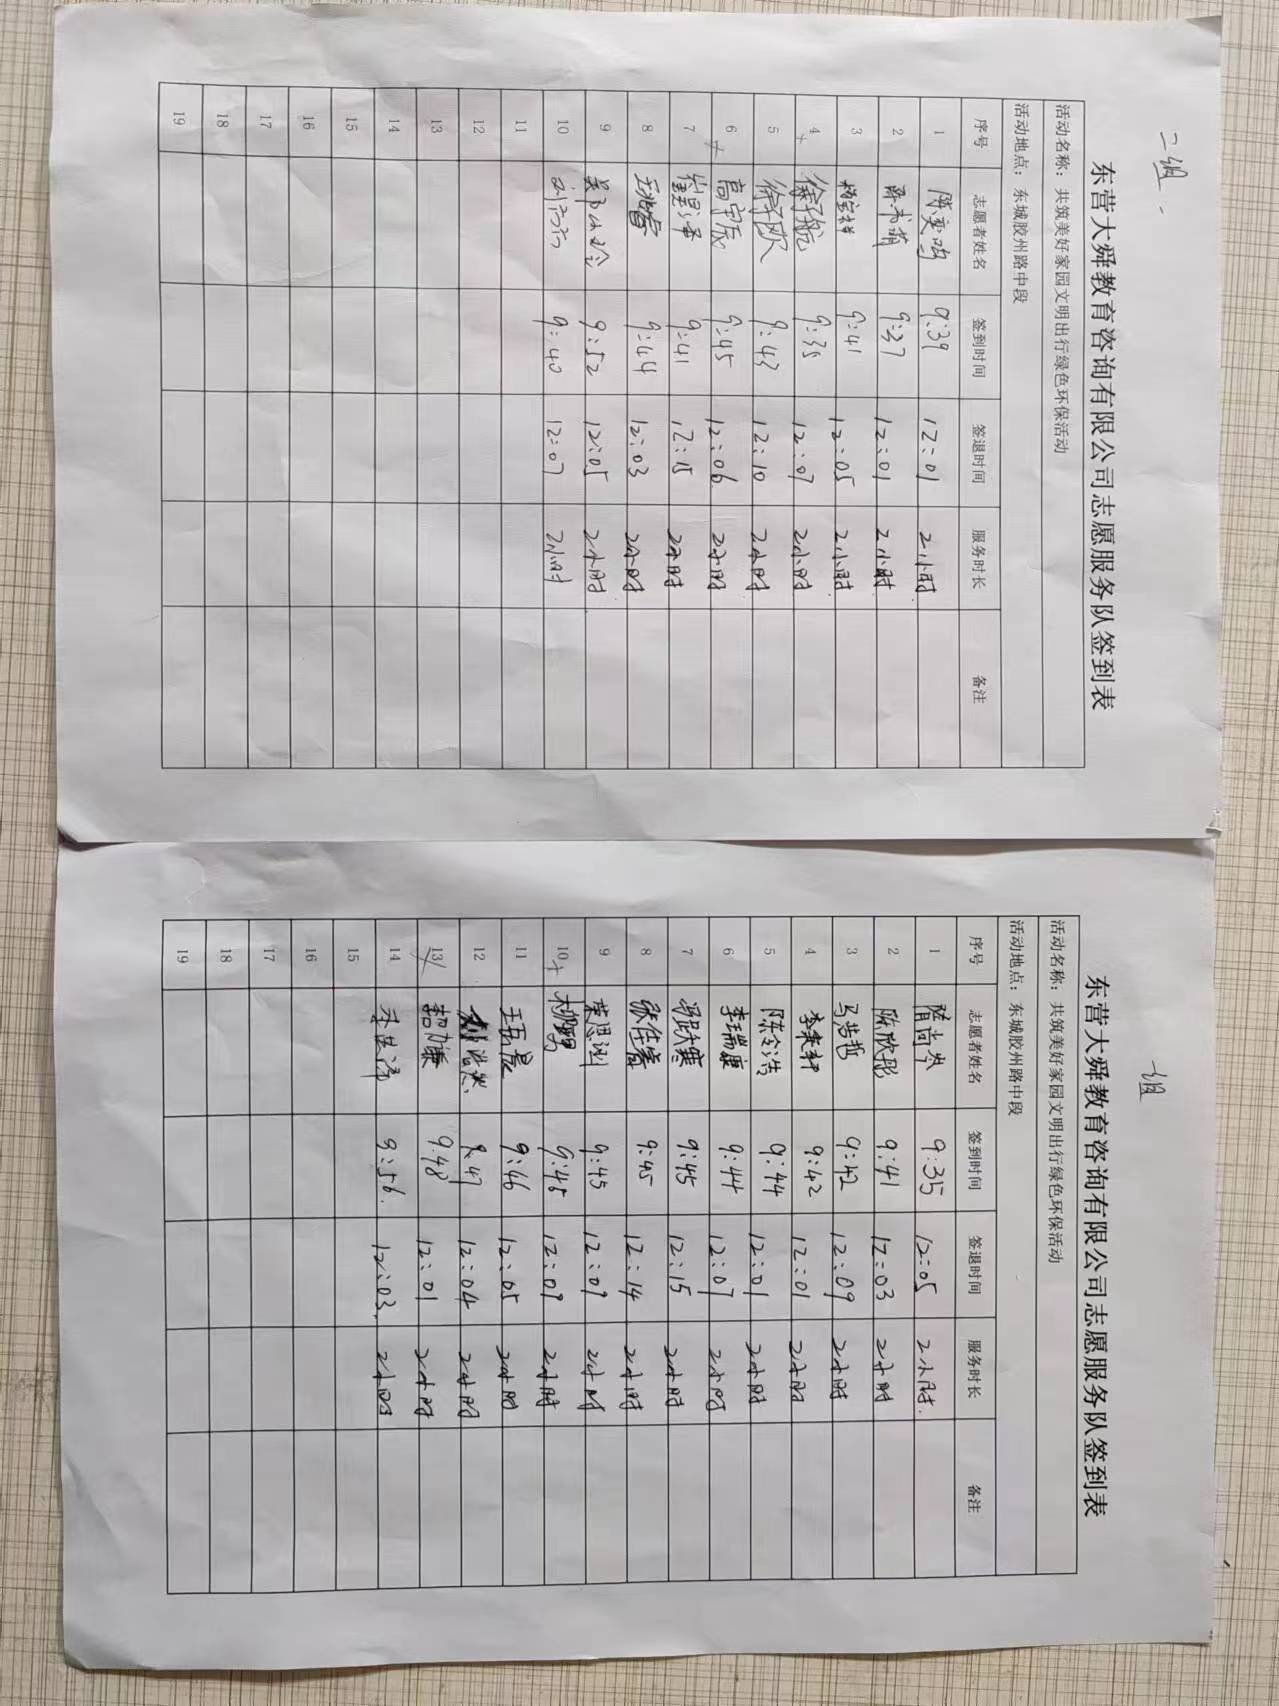 二组.
东营大舜教育咨询有限公司志愿服务队签到表
活动名称：共筑美好家园文明出行绿色环保活动
活动地点：东城胶州路中段
序号 志愿者姓名 签到时间 签退时间 服务时长 备注
1 陈奕鸣 9:39 12:01 2小时
2 9:37 12:01 2小时
3 9:41 12:05 2小时
4 徐子航 9:35 12:07 2小时
5 徐子欧 9:43 12:10 2小时
6 高宇辰 9:45 12:06 2小时
7 9:41 12:15 2小时
8 9:44 12:03 2小时
9 9:52 12:05 2小时
10 9:40 12:07 2小时
11
12
13
14
15
16
17
18
19
一组
东营大舜教育咨询有限公司志愿服务队签到表
活动名称：共筑美好家园文明出行绿色环保活动
活动地点：东城胶州路中段
序号 志愿者姓名 签到时间 签退时间 服务时长 备注
1 隋尚岑 9:35 12:05 2小时.
2 陈欣彤 9:41 12:03 2小时
3 马浩哲 9:42 12:09 2小时
4 李秉轩 9:42 12:01 2小时
5 陈令浩 9:44 12:01 2小时
6 李瑞康 9:44 12:07 2小时
7 9:45 12:15 2小时
8 张佳睿 9:45 12:14 2小时
9 荣思涵 9:45 12:07 2小时
10 9:45 12:07 2小时
11 9:46 12:05 2小时
12 9:47 12:04 2小时
13 9:48 12:01 2小时
14 9:56. 12:03. 2小时
15
16
17
18
19